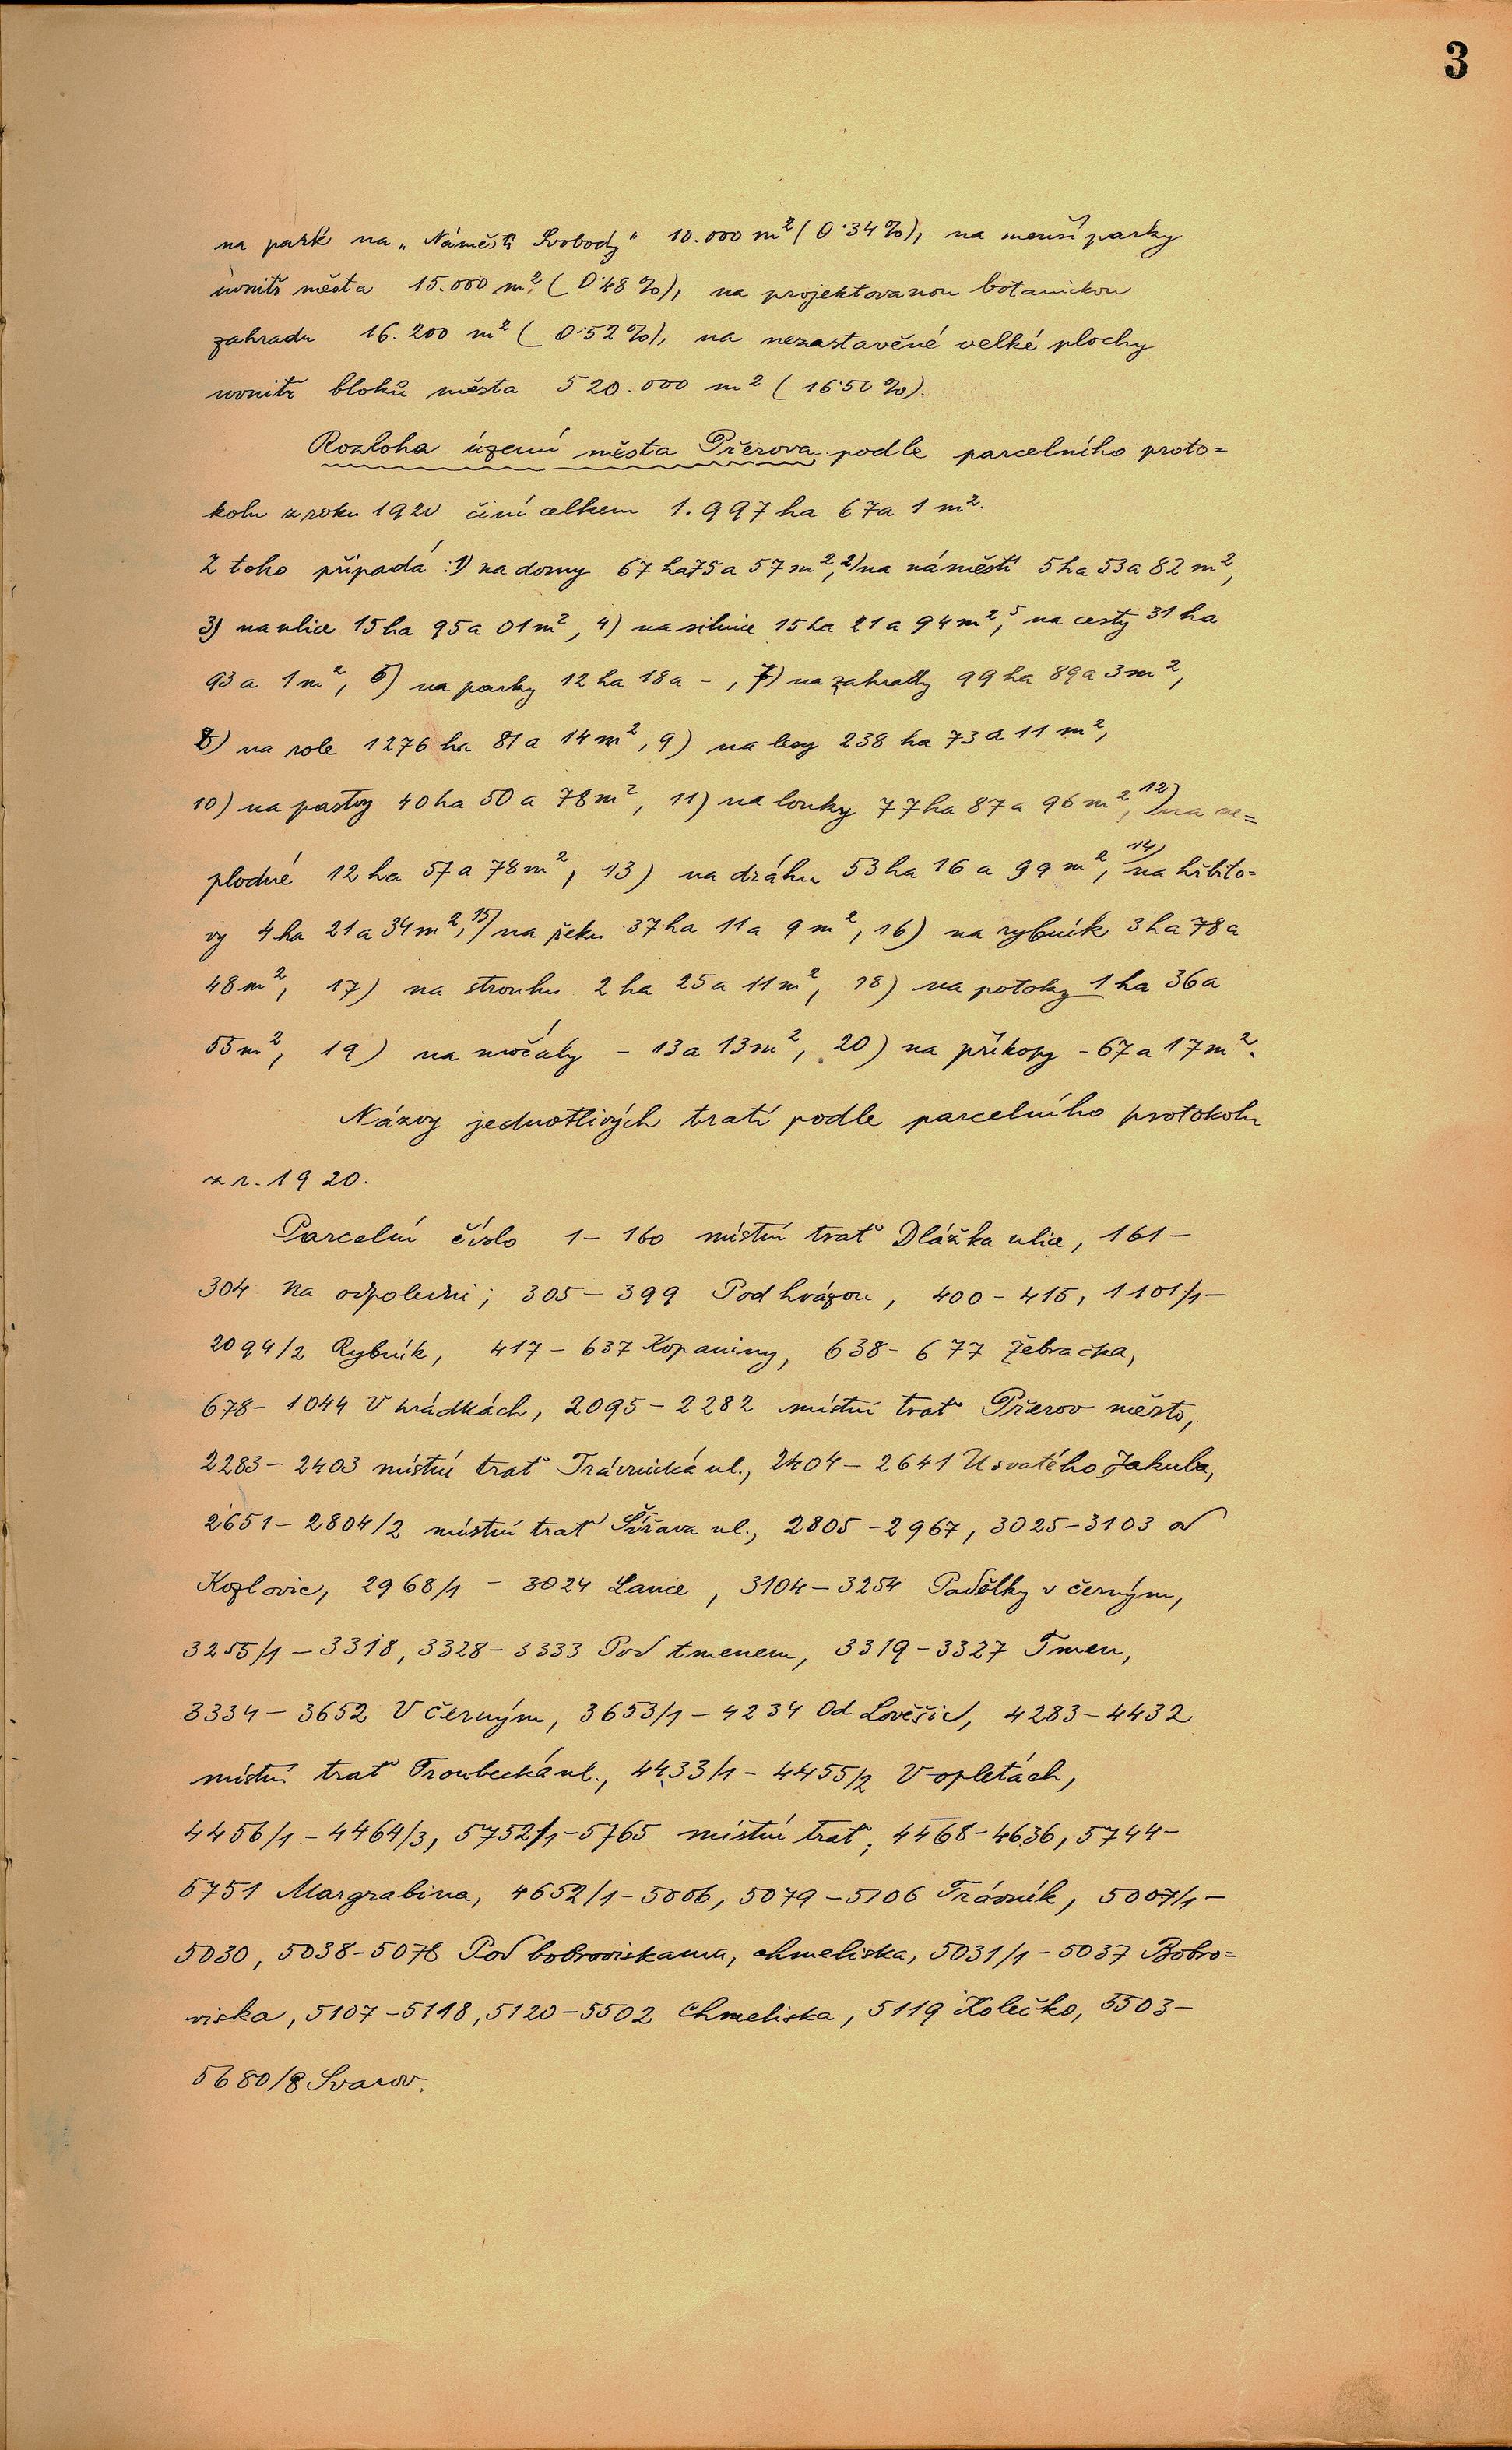 3
na park na „Náměstí Svobody“ 10.000 m² (0·34%), na menší parky
uvnitř města 15.000 m² (0·48%), na projektovanou botanickou
zahradu 16.200 m² (0·52%), na nezastavěné velké plochy
uvnitř bloků města 520.000 m² (16·50%).
Rozloha území města Přerova podle parcelního proto=
kolu z roku 1920 činí celkem 1.997 ha 67a 1 m².
Z toho připadá: 1) na domy 67 ha 75a 57 m², 2) na náměstí 5 ha 53a 82 m²,
3) na ulice 15 ha 95a 01 m², 4) na silnice 15 ha 21a 94 m², 5 na cesty 31 ha
93 a 1 m², 6) na parky 12 ha 18a -, 7) na zahrady 99 ha 89a 3 m²,
8) na role 1276 ha 81a 14 m², 9) na lesy 238 ha 73a 11 m²,
10) na pastvy 40 ha 50a 78 m², 11) na louky 77 ha 87a 96 m², 12) na ne=
plodné 12 ha 57a 78 m², 13) na dráhu 53 ha 16 a 99 m², 14) na hřbito=
vy 4 ha 21a 34 m², 15) na řeku 37 ha 11a 9 m², 16) na rybník 3 ha 78a
48 m², 17) na strouhu 2 ha 25a 11 m², 18) na potoky 1 ha 36a
55 m², 19) na močály - 13a 13 m², 20) na příkopy - 67a 17 m².
Názvy jednotlivých tratí podle parcelního protokolu
z r. 1920.
Parcelní číslo 1-160 místní trať Dlážka ulice, 161-
304 Na odpoledni; 305-399 Pod hrázou, 400-415, 1101/1-
2094/2 Rybník, 417-637 Kopaniny, 638-677 Žebračka,
678-1044 V hrádkách, 2095-2282 místní trať Přerov město,
2283-2403 místní trať Trávnická ul., 2404-2641 U svatého Jakuba,
2651-2804/2 místní trať Šířava ul., 2805-2967, 3025-3103 od
Kozlovic, 2968/1-3024 Lance, 3104-3254 Padělky v černým,
3255/1-3318, 3328-3333 Pod tmenem, 3319-3327 Tmen,
3334-3652 V černým, 3653/1-4234 Od Lověšic, 4283-4432
místní trať Troubecká ul., 4433/1-4455/2 V opletách,
4456/1-4464/3, 5752/1-5765 místní trať, 4468-4636, 5744-
5751 Margrabina, 4652/1-5006, 5079-5106 Trávník, 5007/1-
5030, 5038-5078 Pod bobroviskama, chmeliska, 5031/1-5037 Bobro=
viska, 5107-5118, 5120-5502 Chmeliska, 5119 Kolečko, 5503-
5680/8 Svarov.